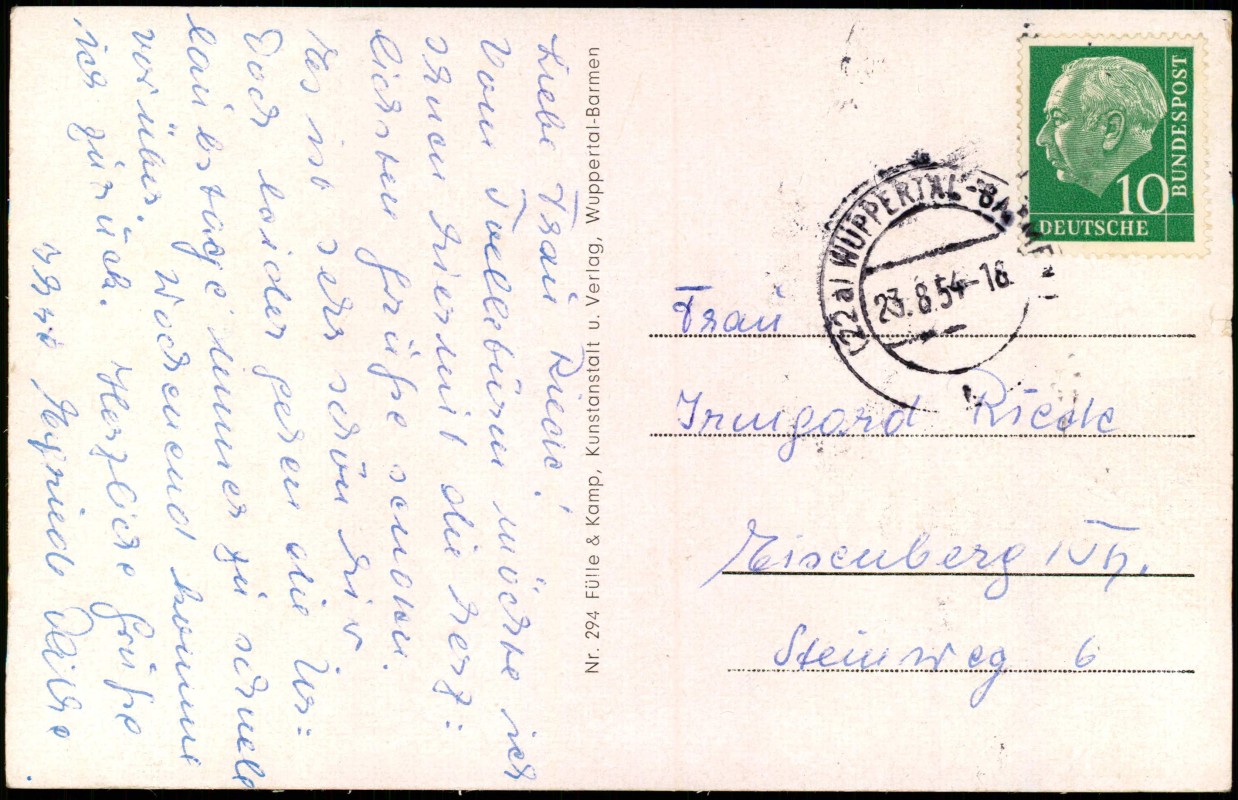 Liebe Frau Riede!
Vom Toelleturm möchte ich
Ihnen hiermit die herz-
lichsten Grüße senden.
Es ist sehr schön hier
Doch leider gehen die Ur=
laubstage immer zu schnell
vorüber. Wochenend komme
ich zurück. Herzliche Grüße
Ihre
Nr. 294 Fülle & Kamp, Kunstanstalt u. Verlag, Wuppertal-Barmen
DEUTSCHE BUNDESPOST
10
(22a) WUPPERTAL-BARMEN
23.8.54-18
Frau
Irmgard Riede
Eisenberg /Th.
Steinweg 6